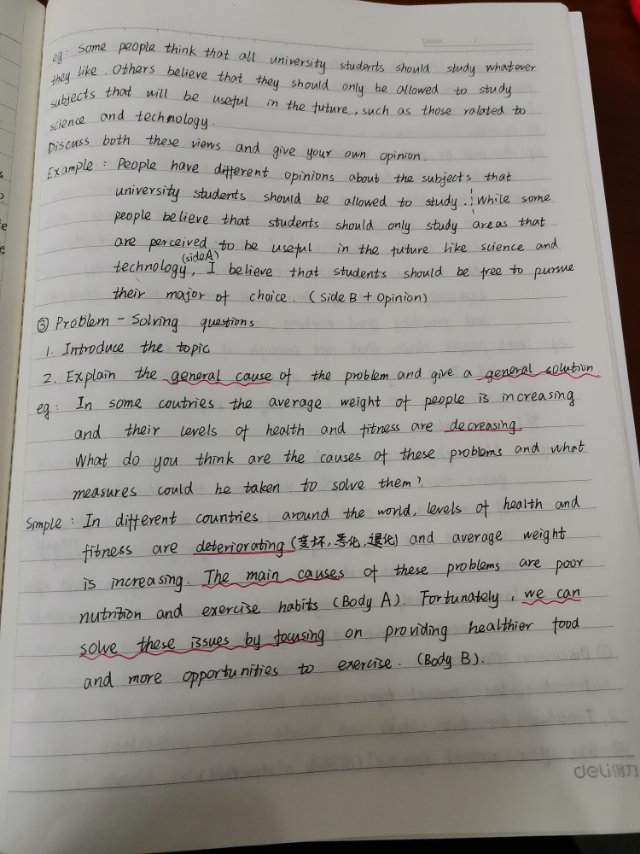 Date. /
eg: Some people think that all university students should study whatever
they like. Others believe that they should only be allowed to study
subjects that will be useful in the future, such as those ralated to
science and technology.
Discuss both these views and give your own opinion.
Example: People have different opinions about the subjects that
university students should be allowed to study. While some
people believe that students should only study areas that
are perceived to be useful in the future like science and
technology (side A), I believe that students should be free to pursue
their major of choice. (Side B + Opinion)
③ Problem - Solving questions
1. Introduce the topic
2. Explain the general cause of the problem and give a general solution
eg: In some coutries the average weight of people is increasing
and their levels of health and fitness are decreasing.
What do you think are the causes of these problems and what
measures could be taken to solve them?
Simple: In different countries around the world, levels of health and
fitness are deteriorating (变坏,恶化,退化) and average weight
is increasing. The main causes of these problems are poor
nutrition and exercise habits (Body A). Fortunately, we can
solve these issues by focusing on providing healthier food
and more opportunities to exercise. (Body B).
deli得力